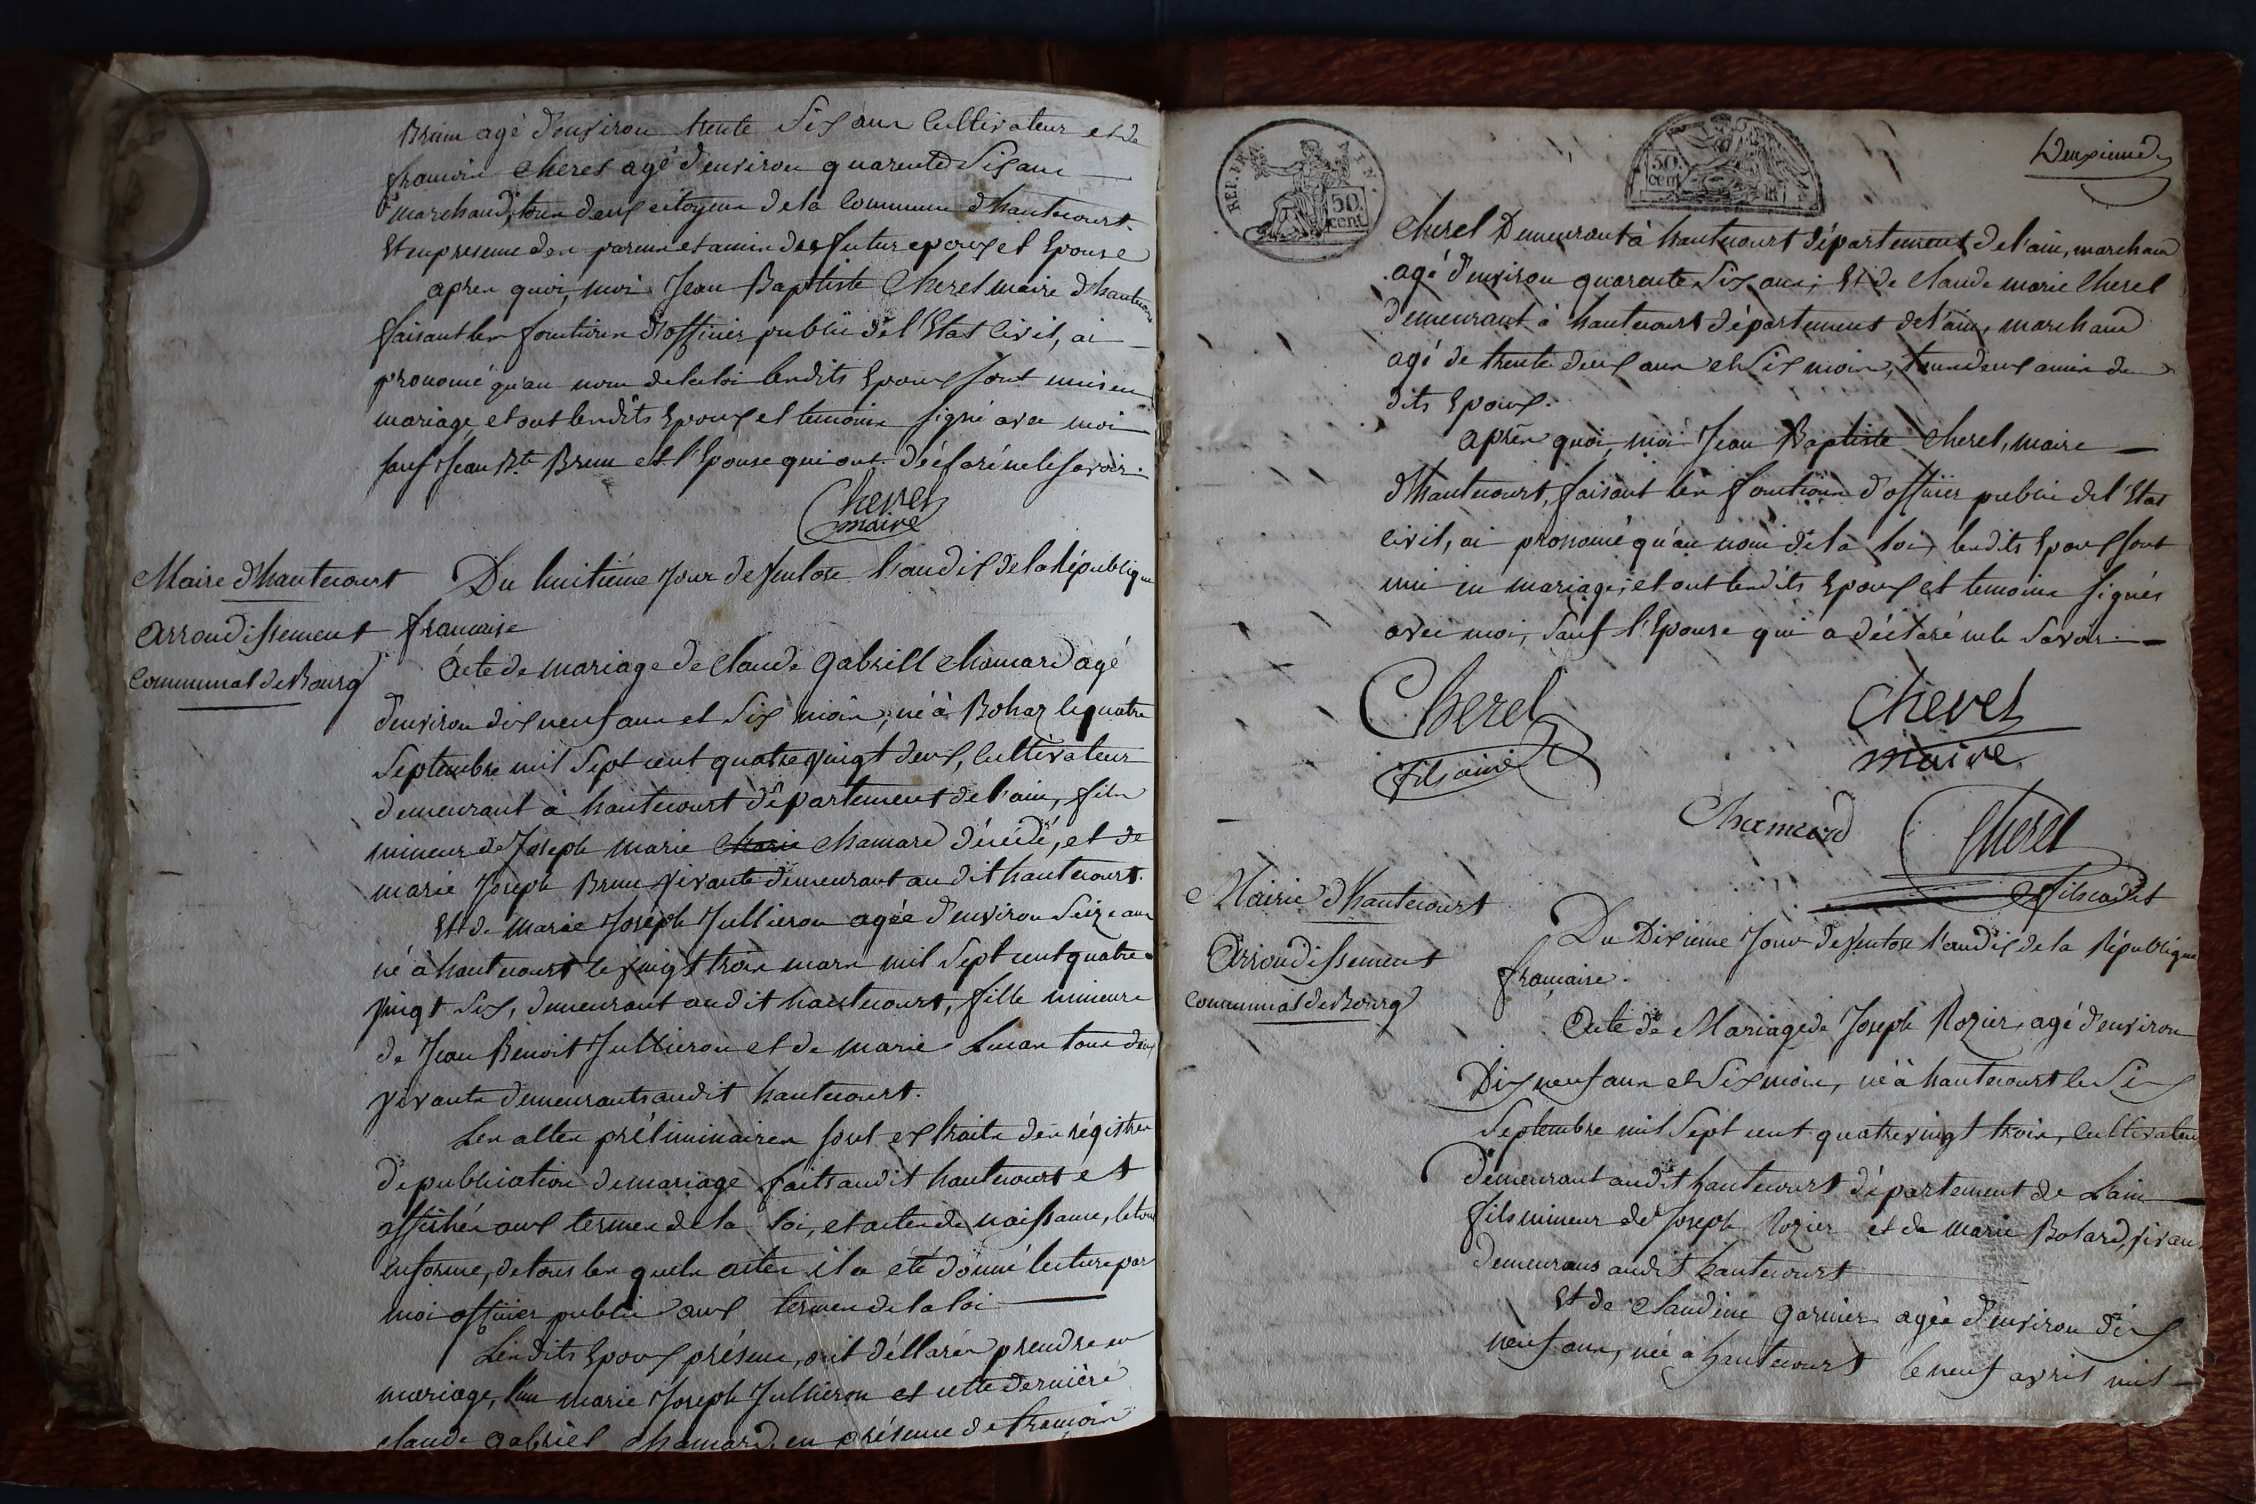 Brun agé d'environ trente Six ans Cultivateur et de
francois Cherel agé d'environ quarente Six ans
marchand, tous deux citoyens de la Commune d'hautecourt.
Et en presence des parens et amis des futur epoux et Epouse
apres quoi, moi Jean Baptiste Cherel maire d'hautecourt
faisant les fonctions d'officier public de l'Etat Civil, ai
prononcé qu'au nom de la loi lesdits Epoux sont unis en
mariage, et ont lesdits Epoux et temoins signé avec moi
sauf Jean Bte Brun et l'Epouse qui ont déclaré ne le savoir.
Cherel
maire
Maire d'hautecourt
Arrondissement
Communal de Bourg
Du huitième Jour de Ventose l'an dix de la République
francaise
Acte de mariage de Claude Gabriell Chamard agé
d'environ dix neuf ans et Six mois, né à Bohaz le quatre
Septembre mil Sept cent quatre vingt deux, Cultivateur
demeurant à hautecourt département de l'ain, fils
mineur de Joseph marie Chamard décédé, et de
marie Joseph Brun vivante demeurant audit hautecourt.
Et de Marie Joseph Jullieron agée d'environ Seize ans
né à hautecourt le vingt trois mars mil Sept cent quatre
vingt Six, demeurant audit hautecourt, fille mineure
de Jean Benoit Jullieron et de marie tous deux
vivants demeurants audit hautecourt.
Les actes préliminaires sont extraits des régistres
de publication de mariage faits audit hautecourt et
affichés aux termes de la loi, et actes de naissance, le tout
en forme, de tous les quels actes il a eté donné lecture par
moi officier public aux termes de la loi
Lesdits Epoux présens, ont déclarés prendre en
mariage, l'un Marie Joseph Jullieron et cette dernière
Claude Gabriel Chamard, en présence de francois
REP. FRA.
50.
cent
50
cent
Deuxieme
Cherel Demeurant à hautecourt département de l'ain, marchand
agé d'environ quarente Six ans; Et de Claude marie Cherel
demeurant à hautecourt département de l'ain, marchand
agé de trente deux ans et Six mois, tous deux amis des
dits Epoux.
Après quoi, moi Jean Baptiste Cherel, maire
d'hautecourt, faisant les fonctions d'officier public de l'Etat
civil, ai prononcé qu'au nom de la loi, lesdits Epoux sont
uni en mariage; et ont lesdits Epoux et temoins signés
avec moi, sauf l'Epouse qui a déclaré ne le savoir.
Cherel
fils ainé
Cherel
maire
Chamard
Cherel
fils cadet
Mairie d'hautecourt
Arrondissement
communal de Bourg
Du Dixieme Jour de Ventose l'an dix de la République
francaise.
Acte de Mariage de Joseph Rozier, agé d'environ
Dix neuf ans et Six mois, né à hautecourt le Six
Septembre mil Sept cent quatre vingt trois, Cultivateur
demeurant audit hautecourt département de Lain
fils mineur de Joseph Rozier et de Marie Bolard, vivans
demeurans audit hautecourt
Et de Claudine Garnier agée d'environ dix
neuf ans, née à hautecourt le neuf avril mil